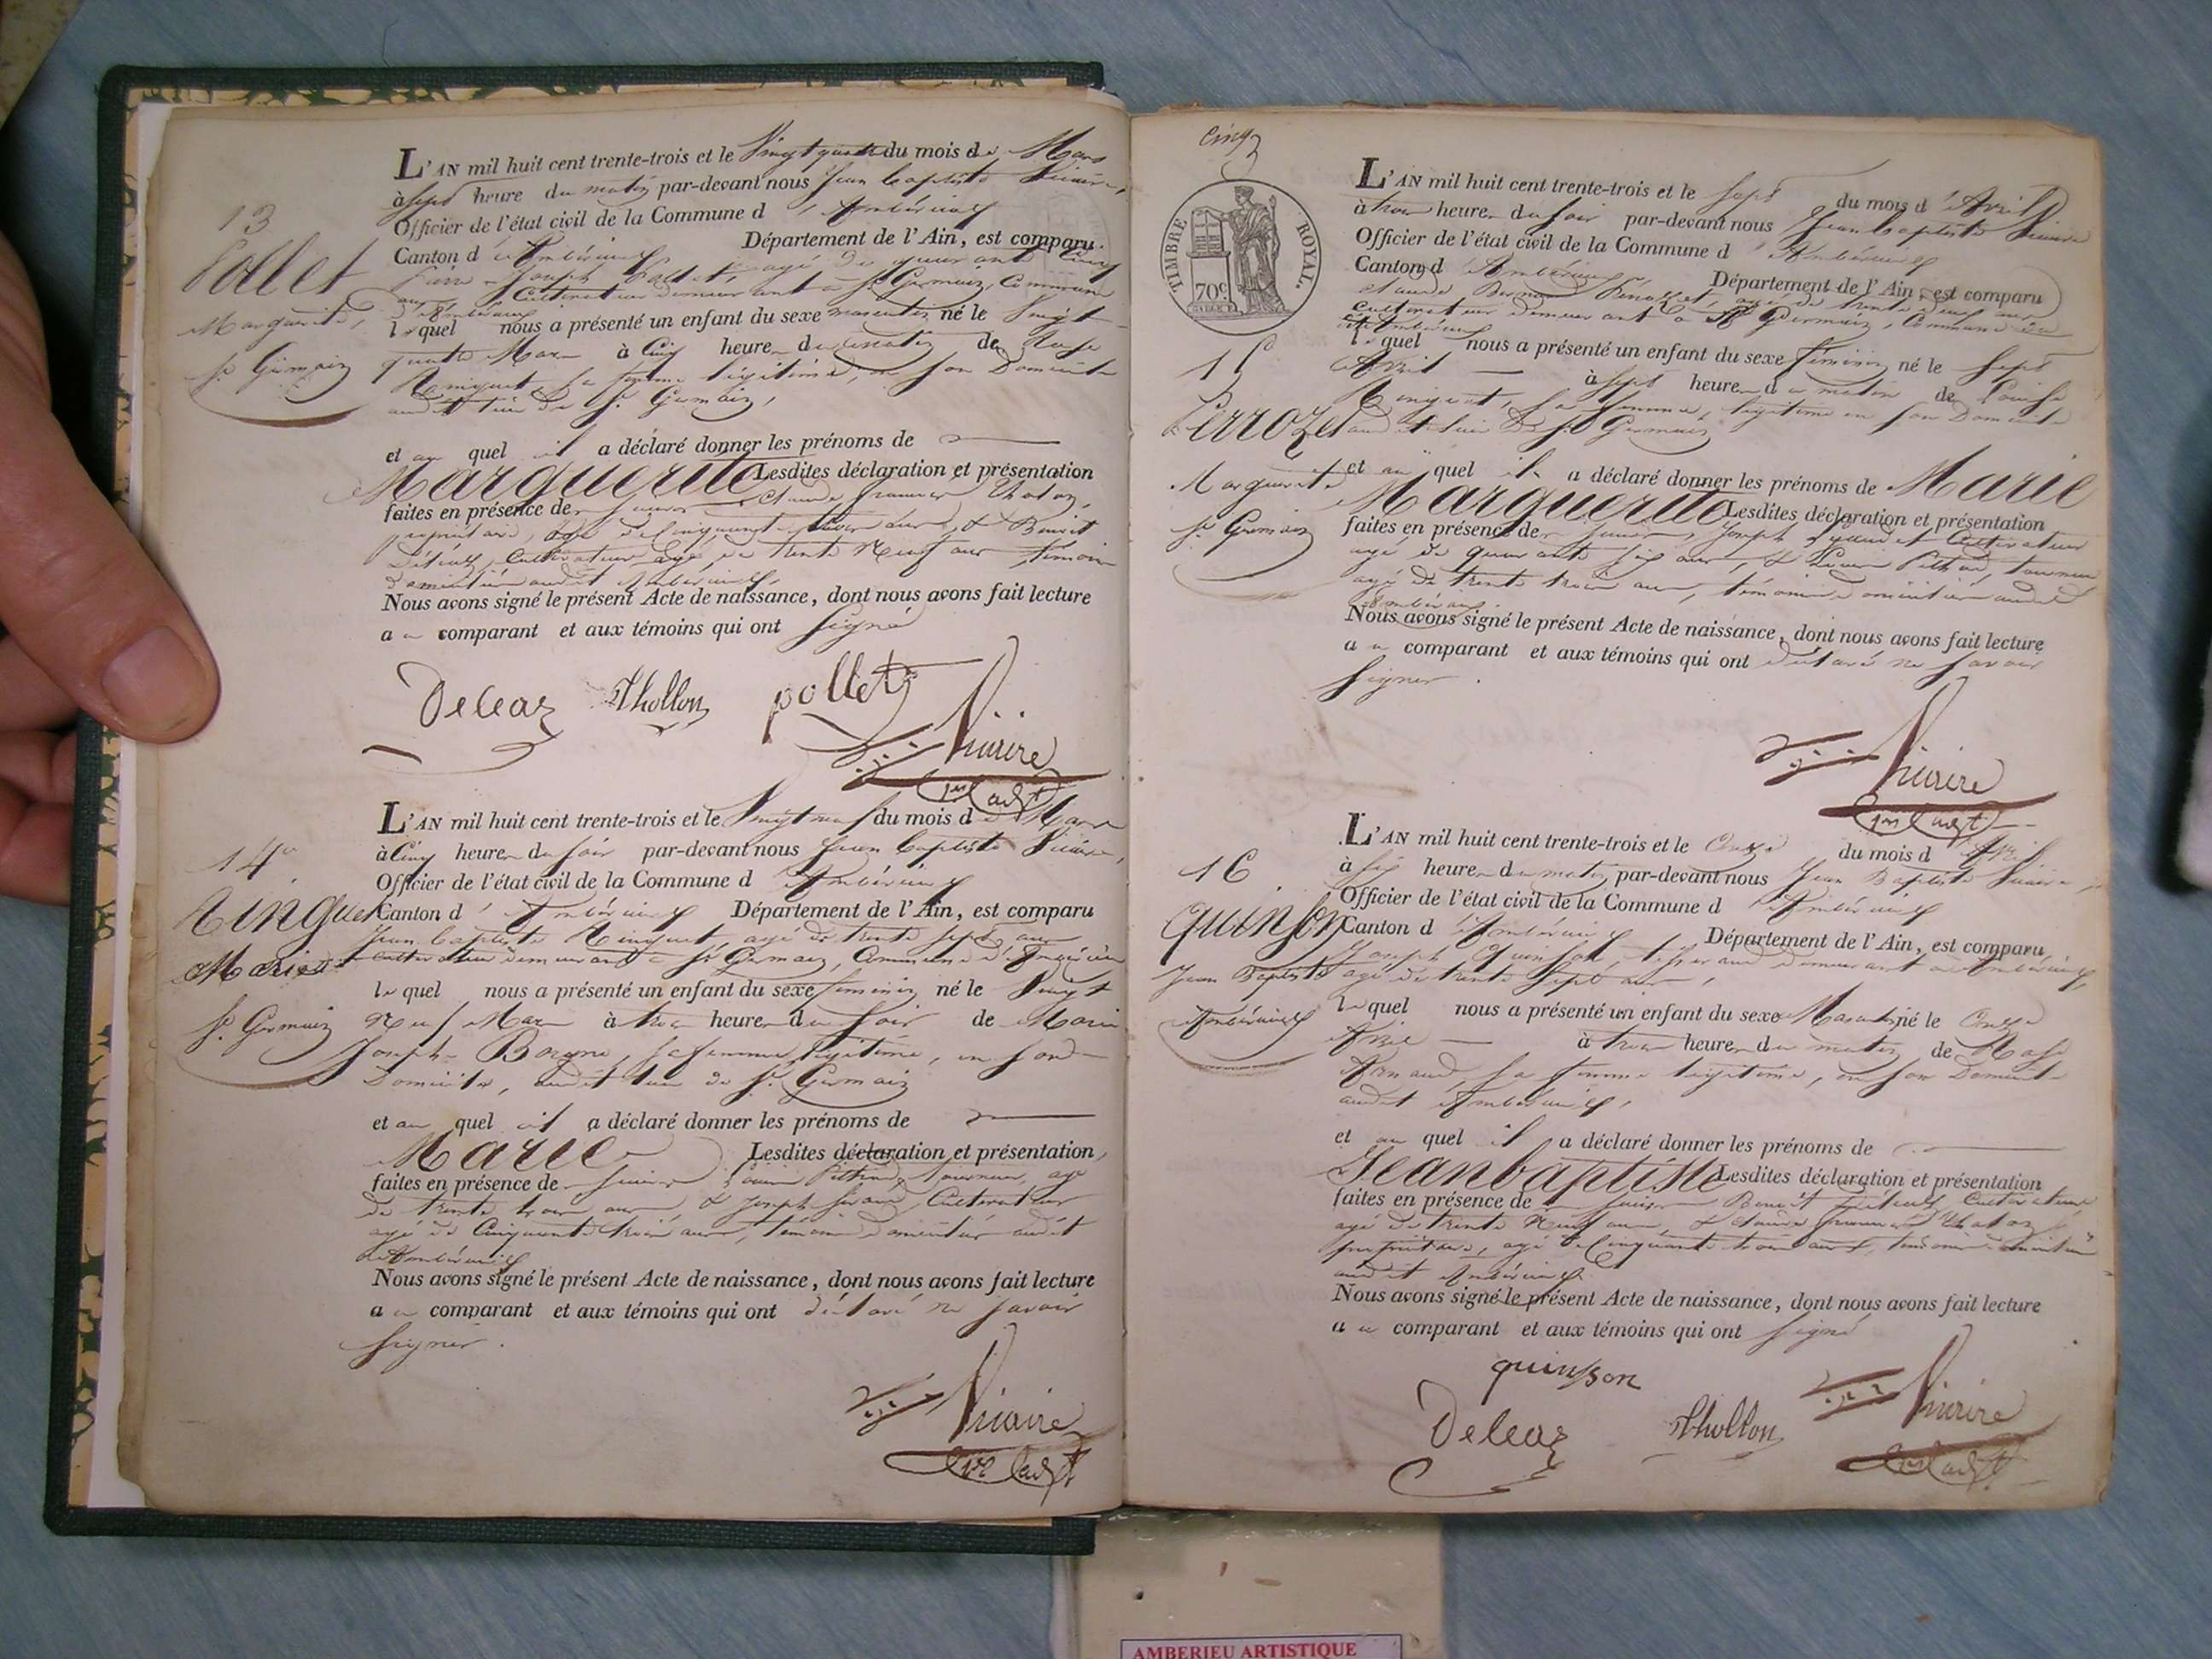 13
Pollet
Marguerite
St Germain
L'AN mil huit cent trente-trois et le Vingt quatre du mois de Mars
à sept heure du matin par-devant nous Jean Baptiste Vicaire,
Officier de l'état civil de la Commune d'Ambérieux
Canton d'Ambérieux Département de l'Ain, est comparu
Joseph Pollet, agé de quarante cinq
ans Cultivateur demeurant à St Germain, Commune
d'Ambérieux
lequel nous a présenté un enfant du sexe masculin né le Vingt
quatre Mars à Cinq heure du matin de
sa femme légitime, en son Domicile
audit lieu de St Germain,
et au quel il a déclaré donner les prénoms de
Marguerite Lesdites déclaration et présentation
faites en présence de Claude François Tholon,
propriétaire, agé de cinquante trois ans, & Benoit
Cultivateur agé de trente Neuf ans, témoins
domiciliés audit Ambérieux.
Nous avons signé le présent Acte de naissance, dont nous avons fait lecture
au comparant et aux témoins qui ont signé
Deleaz Thollon pollet
Vicaire
14
Ringuet
Marie
St Germain
L'AN mil huit cent trente-trois et le Vingt neuf du mois de Mars
à Cinq heure du soir par-devant nous Jean Baptiste Vicaire,
Officier de l'état civil de la Commune d'Ambérieux
Canton d'Ambérieux Département de l'Ain, est comparu
Jean Baptiste Ringuet, agé de trente sept ans
Cultivateur demeurant à St Germain, Commune d'Ambérieux
lequel nous a présenté un enfant du sexe feminin né le Vingt
Neuf Mars à trois heure du soir de Marie
Joseph sa femme légitime, en son
Domicile, audit lieu de St Germain
et au quel il a déclaré donner les prénoms de
Marie Lesdites déclaration et présentation
faites en présence de tourneur, agé
de trente trois ans, & Joseph Cultivateur
agé de Cinquante trois ans, témoins domiciliés audit
Ambérieux
Nous avons signé le présent Acte de naissance, dont nous avons fait lecture
au comparant et aux témoins qui ont déclaré ne savoir
signer.
Vicaire
cinq
TIMBRE ROYAL.
70c
15
Perrozet
Marguerite
St Germain
L'AN mil huit cent trente-trois et le sept du mois d'Avril
à trois heure du soir par-devant nous Jean Baptiste Vicaire
Officier de l'état civil de la Commune d'Ambérieux
Canton d'Ambérieux Département de l'Ain, est comparu
Claude Perrozet, agé de trente deux ans
Cultivateur demeurant à St Germain, Commune
d'Ambérieux
lequel nous a présenté un enfant du sexe féminin né le sept
Avril à sept heure du matin de Louise
Ringuet, sa femme légitime en son Domicile
audit lieu de St Germain
et au quel il a déclaré donner les prénoms de Marie
Marguerite Lesdites déclaration et présentation
faites en présence de Joseph Cultivateur
agé de quarante six ans, & tourneur
agé de trente trois ans, témoins domiciliés audit
Ambérieux.
Nous avons signé le présent Acte de naissance, dont nous avons fait lecture
au comparant et aux témoins qui ont déclaré ne savoir
signer.
Vicaire
16
quinson
Jean Baptiste
Ambérieux
L'AN mil huit cent trente-trois et le Onze du mois d'Avril
à six heure du matin par-devant nous Jean Baptiste Vicaire,
Officier de l'état civil de la Commune d'Ambérieux
Canton d'Ambérieux Département de l'Ain, est comparu
Joseph Quinson, tisserand demeurant à Ambérieux,
agé de trente sept ans,
lequel nous a présenté un enfant du sexe Masculin né le Onze
Avril à trois heure du matin de Rose
Arnaud, sa femme légitime, en son Domicile
audit Ambérieux,
et au quel il a déclaré donner les prénoms de
Jean baptiste Lesdites déclaration et présentation
faites en présence de Benoit Cultivateur
agé de trente Neuf ans, & Claude François Tholon
propriétaire, agé de Cinquante trois ans, témoins domiciliés
audit Ambérieux.
Nous avons signé le présent Acte de naissance, dont nous avons fait lecture
au comparant et aux témoins qui ont signé
quinson
Deleaz Thollon Vicaire
AMBERIEU ARTISTIQUE